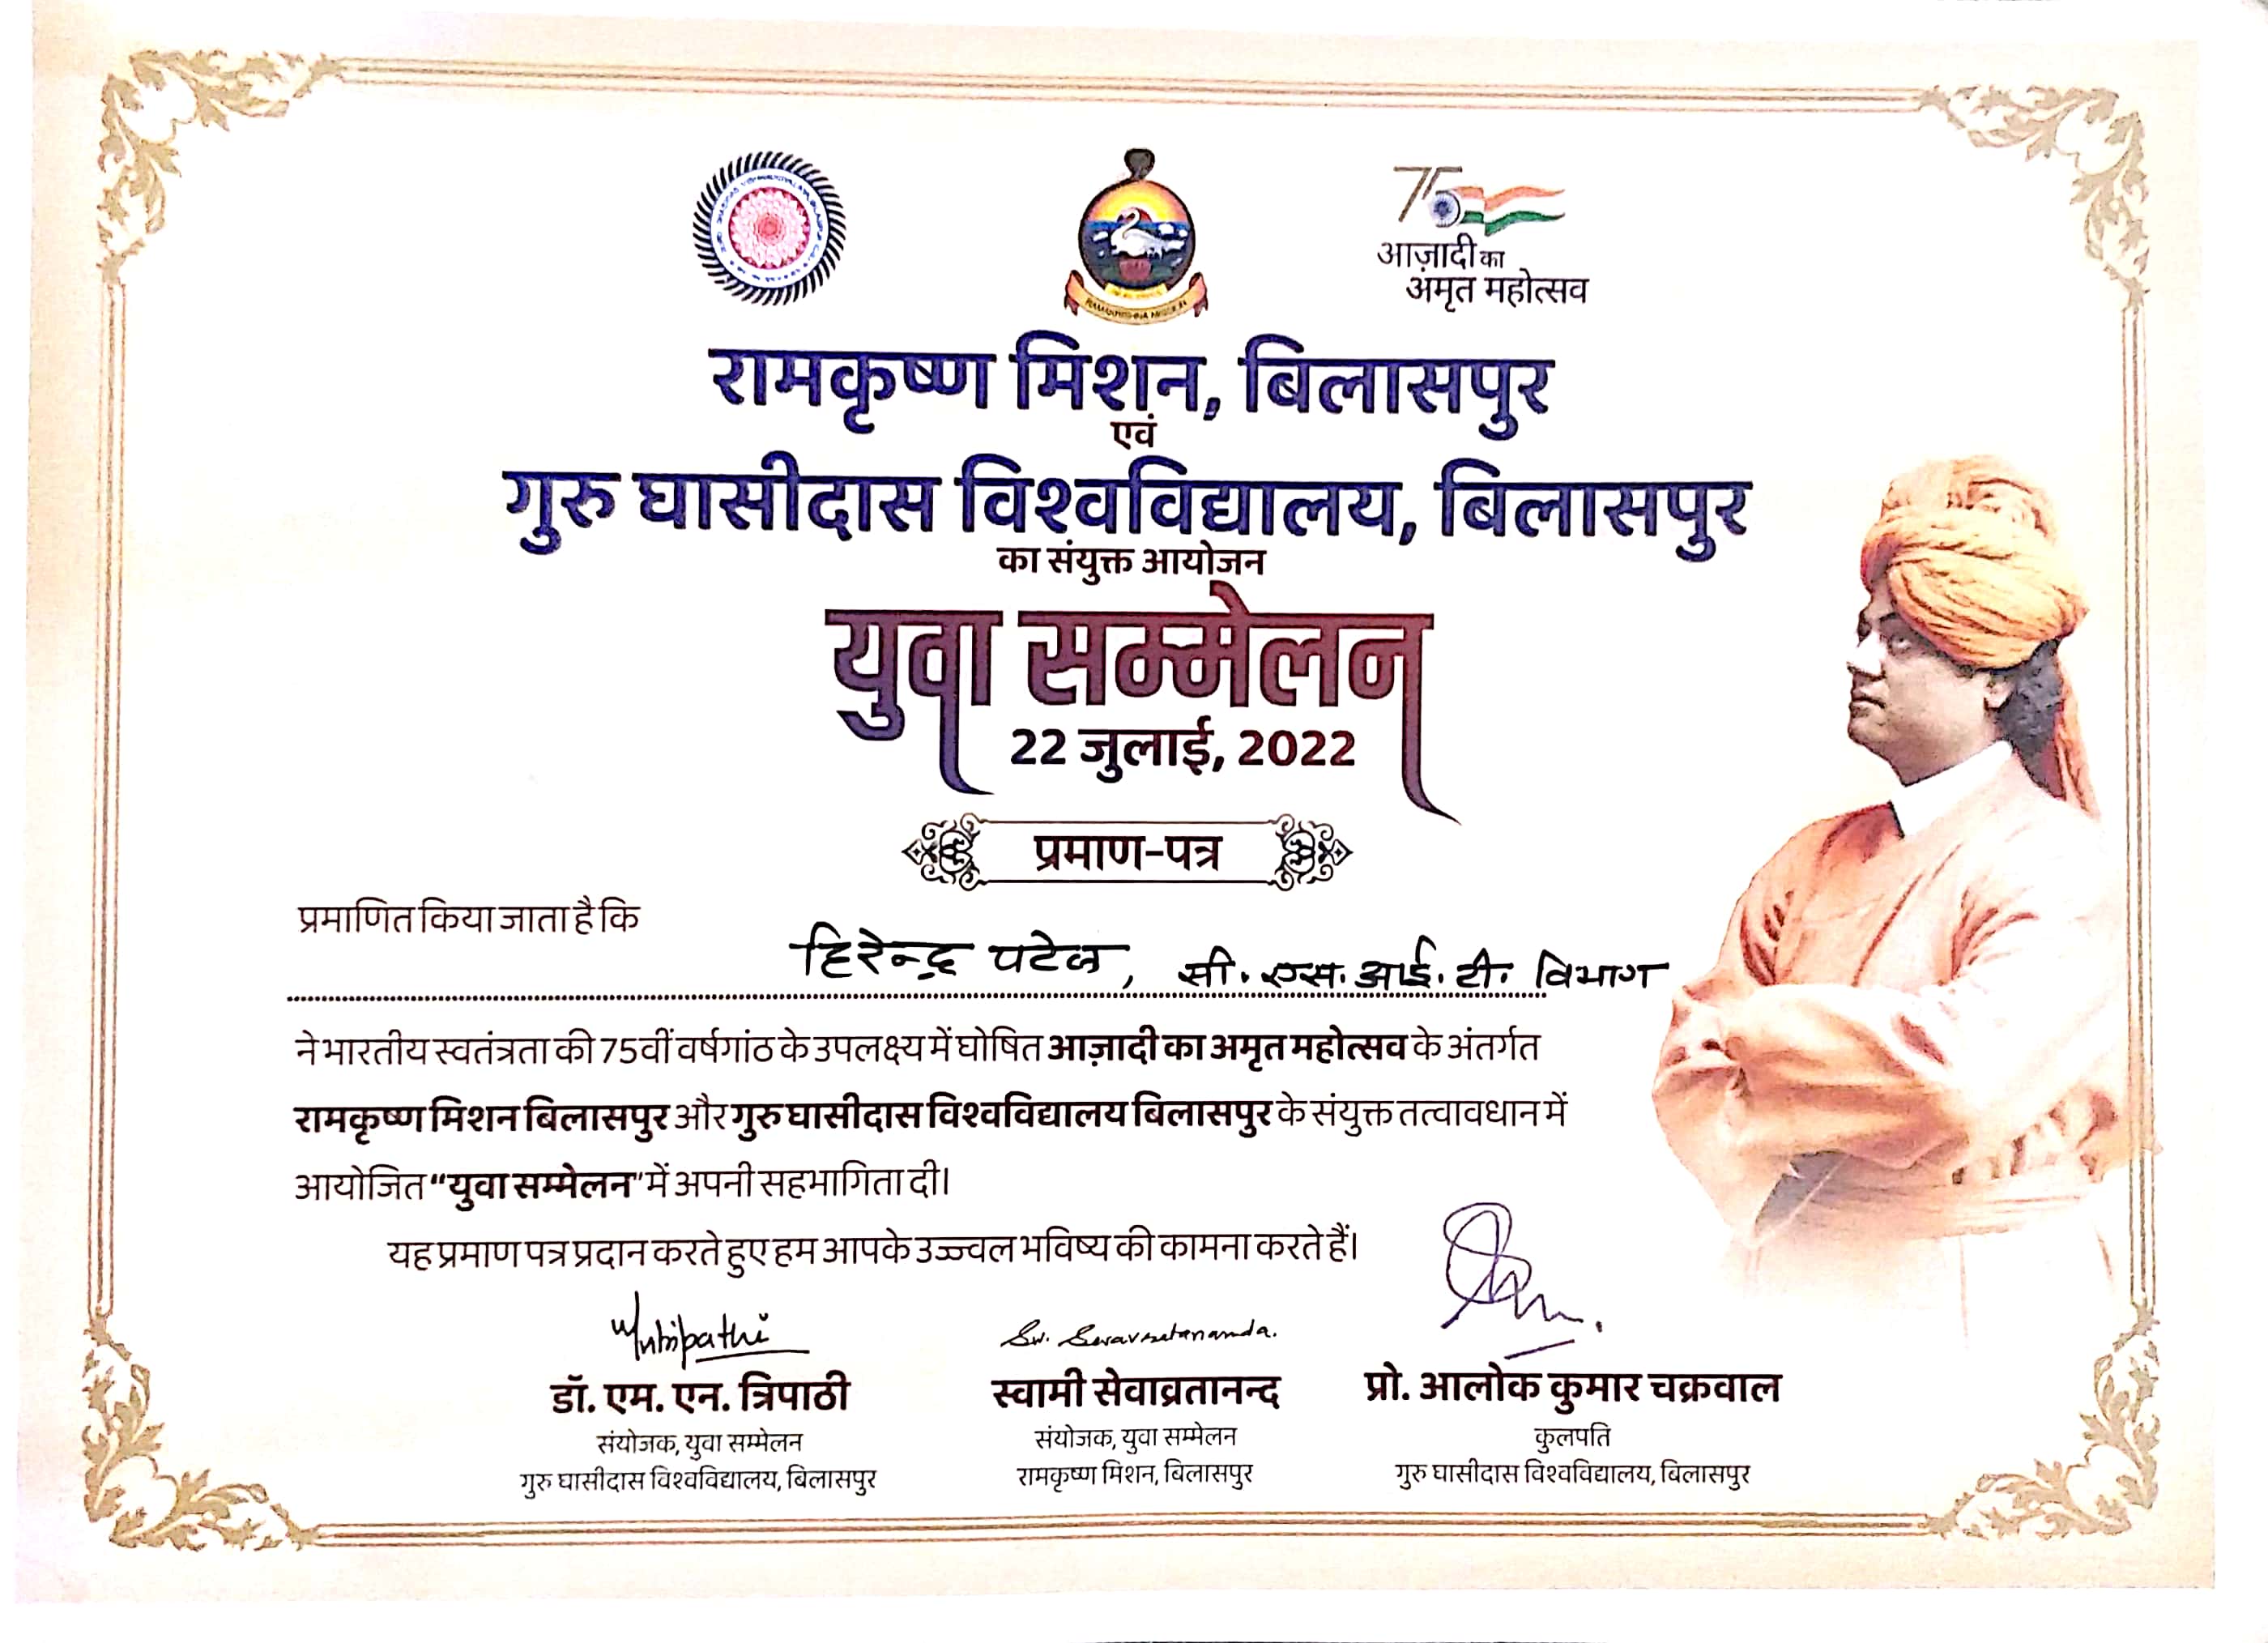 75
आज़ादी का
अमृत महोत्सव
रामकृष्ण मिशन, बिलासपुर
एवं
गुरु घासीदास विश्वविद्यालय, बिलासपुर
का संयुक्त आयोजन
युवा सम्मेलन
22 जुलाई, 2022
प्रमाण-पत्र
प्रमाणित किया जाता है कि
हिरेन्द्र पटेल, सी. एस. आई. टी. विभाग
ने भारतीय स्वतंत्रता की 75वीं वर्षगांठ के उपलक्ष्य में घोषित आज़ादी का अमृत महोत्सव के अंतर्गत
रामकृष्ण मिशन बिलासपुर और गुरु घासीदास विश्वविद्यालय बिलासपुर के संयुक्त तत्वावधान में
आयोजित “युवा सम्मेलन” में अपनी सहभागिता दी।
यह प्रमाण पत्र प्रदान करते हुए हम आपके उज्ज्वल भविष्य की कामना करते हैं।
डॉ. एम. एन. त्रिपाठी
संयोजक, युवा सम्मेलन
गुरु घासीदास विश्वविद्यालय, बिलासपुर
स्वामी सेवाव्रतानन्द
संयोजक, युवा सम्मेलन
रामकृष्ण मिशन, बिलासपुर
प्रो. आलोक कुमार चक्रवाल
कुलपति
गुरु घासीदास विश्वविद्यालय, बिलासपुर